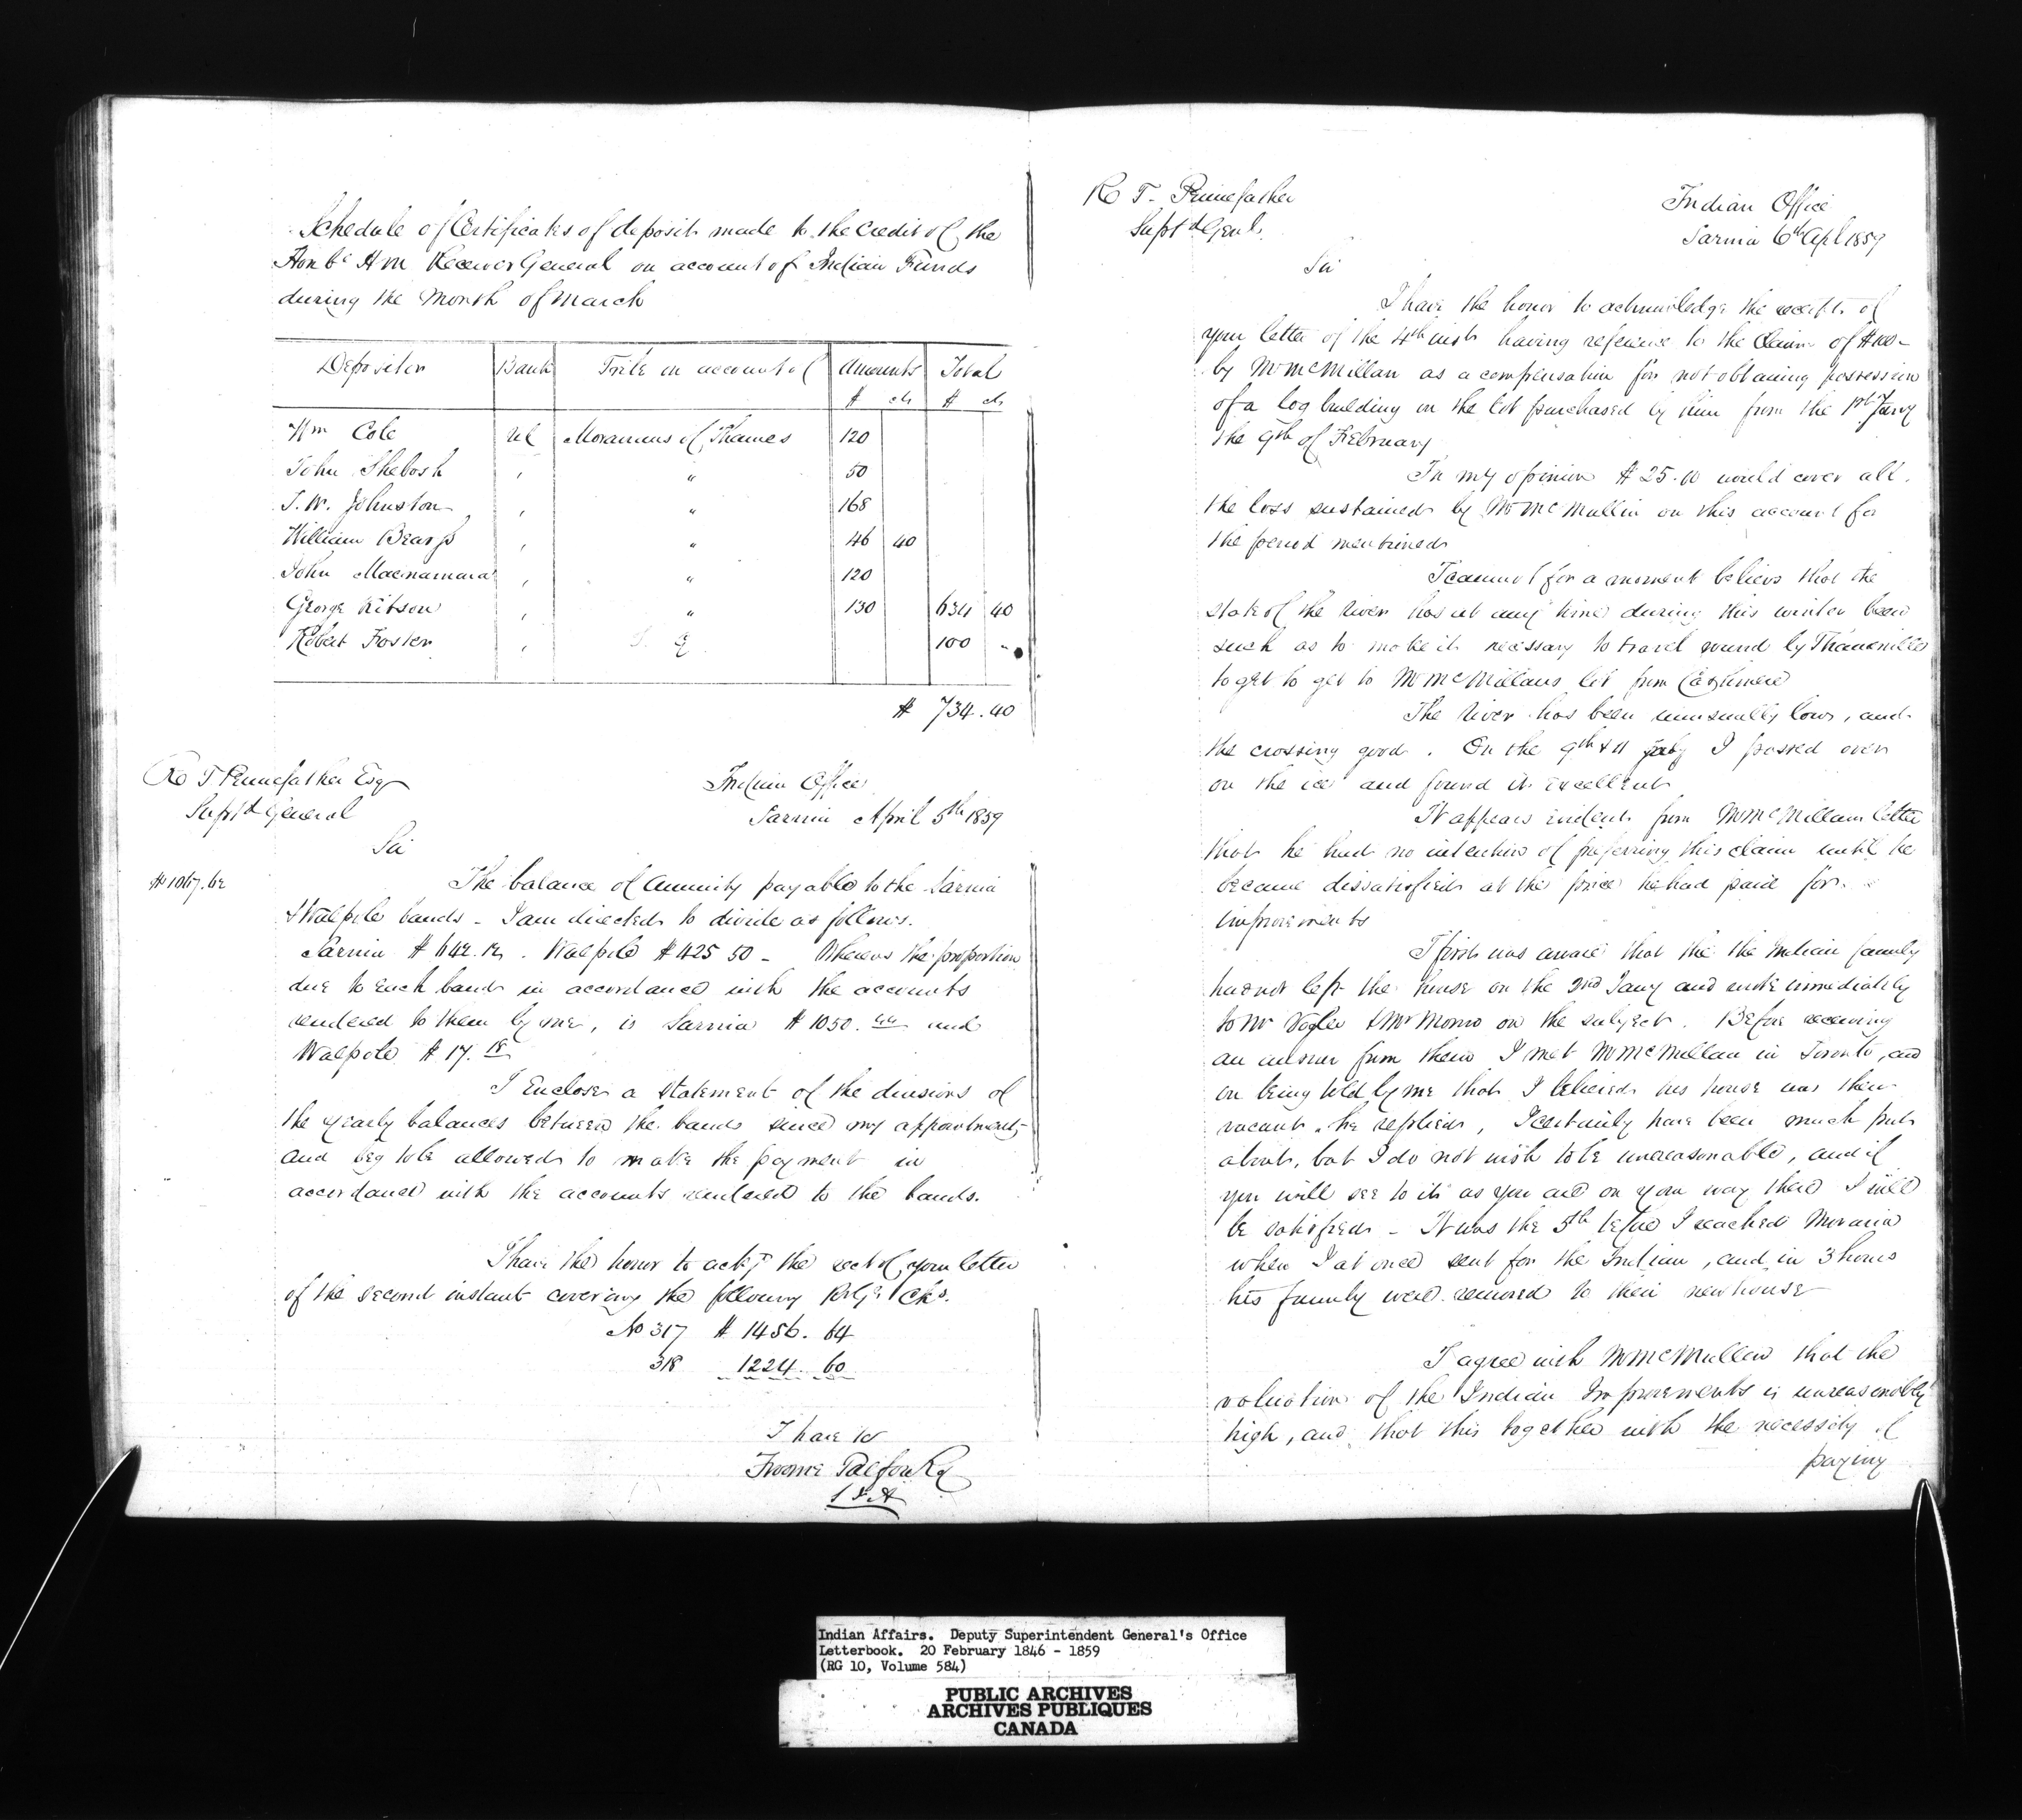 Schedule of Certificates of deposit made to the credit of the
Honble H M Receiver General on account of Indian Funds
during the month of March
Depositor Bank Tribe on account of Amounts Total
$ cts $ cts
Wm Cole UC Moravians of Thames 120
John Shebosh " " 50
J. W. Johnston " " 168
William Bearss " " 46 40
John Macnamara " " 120
George Kitson " " 130 634 40
Robert Foster " 100 -
$ 734.40
R T Pennefather Esq
Supt General
Indian Office
Sarnia April 5th 1859
Sir
$1067.62
The balance of annuity payable to the Sarnia
& Walpole bands - I am directed to divide as follows.
Sarnia $ 642.12. Walpole $ 425 50 - Whereas the proportion
due to each band in accordance with the accounts
rendered to them by me, is Sarnia $ 1050.44 and
Walpole $ 17.18
I Enclose a statement of the divisions of
the yearly balances between the bands since my appointment
and beg to be allowed to make the payment in
accordance with the accounts rendered to the bands.
I have the honor to ackg the rect of your letter
of the second instant covering the following Cks.
No 317 $ 1456. 64
318 1224. 60
I have &c
Froome Talfourd
S I A
R T. Pennefather
Supt Genl.
Indian Office
Sarnia 6th Apl 1859
Sir
I have the honor to acknowledge the receipt of
your letter of the 4th inst having reference to the Claim of $100-
by Mr McMillan as a compensation for not obtaining possession
of a log building on the lot purchased by him from the 1st Jany
the 9th of February
In my opinion $ 25.00 would cover all
the loss sustained by Mr McMullin on this account for
the period mentioned
I cannot for a moment believe that the
state of the river has at any time during this winter been
such as to make it necessary to travel round by Thamesville
to get to get to Mr McMillans lot from Cashmere
The river has been unusually low, and
the crossing good. On the 9th & 11 I passed over
on the ice and found it excellent
It appears evident from Mr McMillans letter
that he had no intention of preferring this claim until he
became dissatisfied at the price he had paid for
improvements
I first was aware that the the Indian family
had not left the house on the 2nd Jany and wrote immediately
to Mr Vogler & Mr on the subject. Before receiving
an answer from them I met Mr McMillan in Toronto, and
on being told by me that I believed his house was then
vacant, he replied, I certainly have been much put
about, but I do not wish to be unreasonable, and if
you will see to it as you are on your way there I will
be satisfied - It was the 5th before I reached Moravia
when I at once sent for the Indian, and in 3 hours
his family were removed to their new house
I agree with Mr McMullen that the
valuation of the Indian Improvements is unreasonably
high, and that this together with the necessity of
paying
Indian Affairs. Deputy Superintendent General's Office
Letterbook. 20 February 1846 - 1859
(RG 10, Volume 584)
PUBLIC ARCHIVES
ARCHIVES PUBLIQUES
CANADA